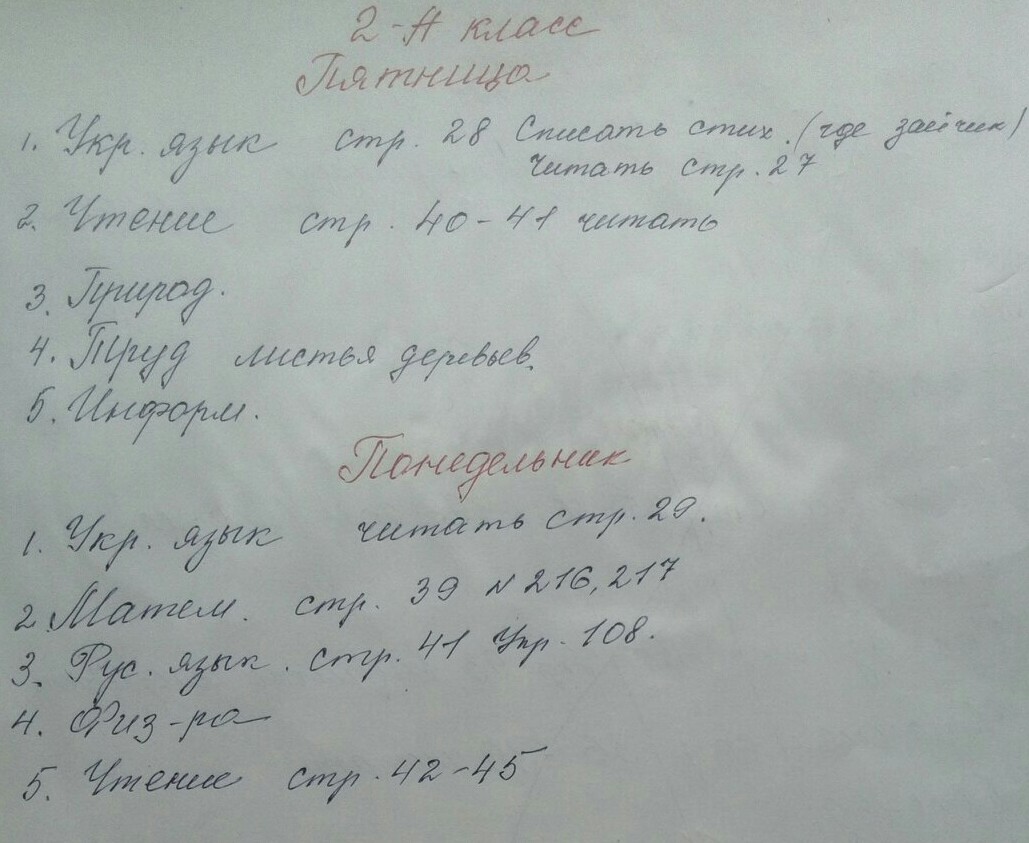 2-А класс
Пятница
1. Укр. язык стр. 28 Списать стих. (где зайчик)
Читать стр. 27
2. Чтение стр. 40-41 читать
3. Природ.
4. Труд листья деревьев.
5. Информ.
Понедельник
1. Укр. язык читать стр. 29.
2. Матем. стр. 39 № 216, 217
3. Рус. язык. стр. 41 Упр. 108.
4. Физ-ра
5. Чтение стр. 42-45